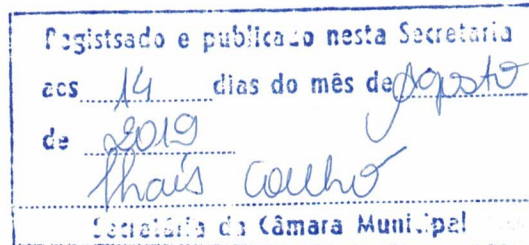 Registsado e publicado nesta Secretaria
aos 14 dias do mês de Agosto
de 2019
Thais Coelho
Secretária da Câmara Municipal